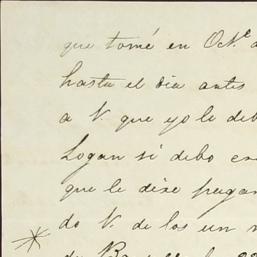 que tomé en Oct.e
hasta el dia antes
a V. que yo le deb
Logan si debo en
que le dixe pagan
do V. de los un
de